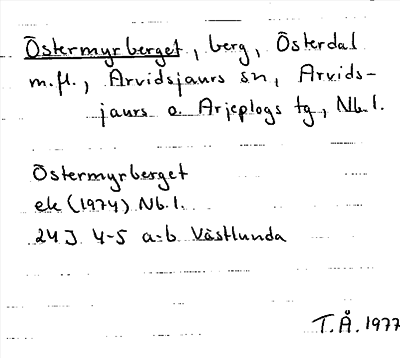 Östermyrberget, berg, Österdal
m.fl., Arvidsjaurs sn, Arvids-
jaurs o. Arjeplogs tg, Nb.l.
Östermyrberget
ek (1974) Nb.l.
24J 4-5 a-b Västlunda
T.Å. 1977